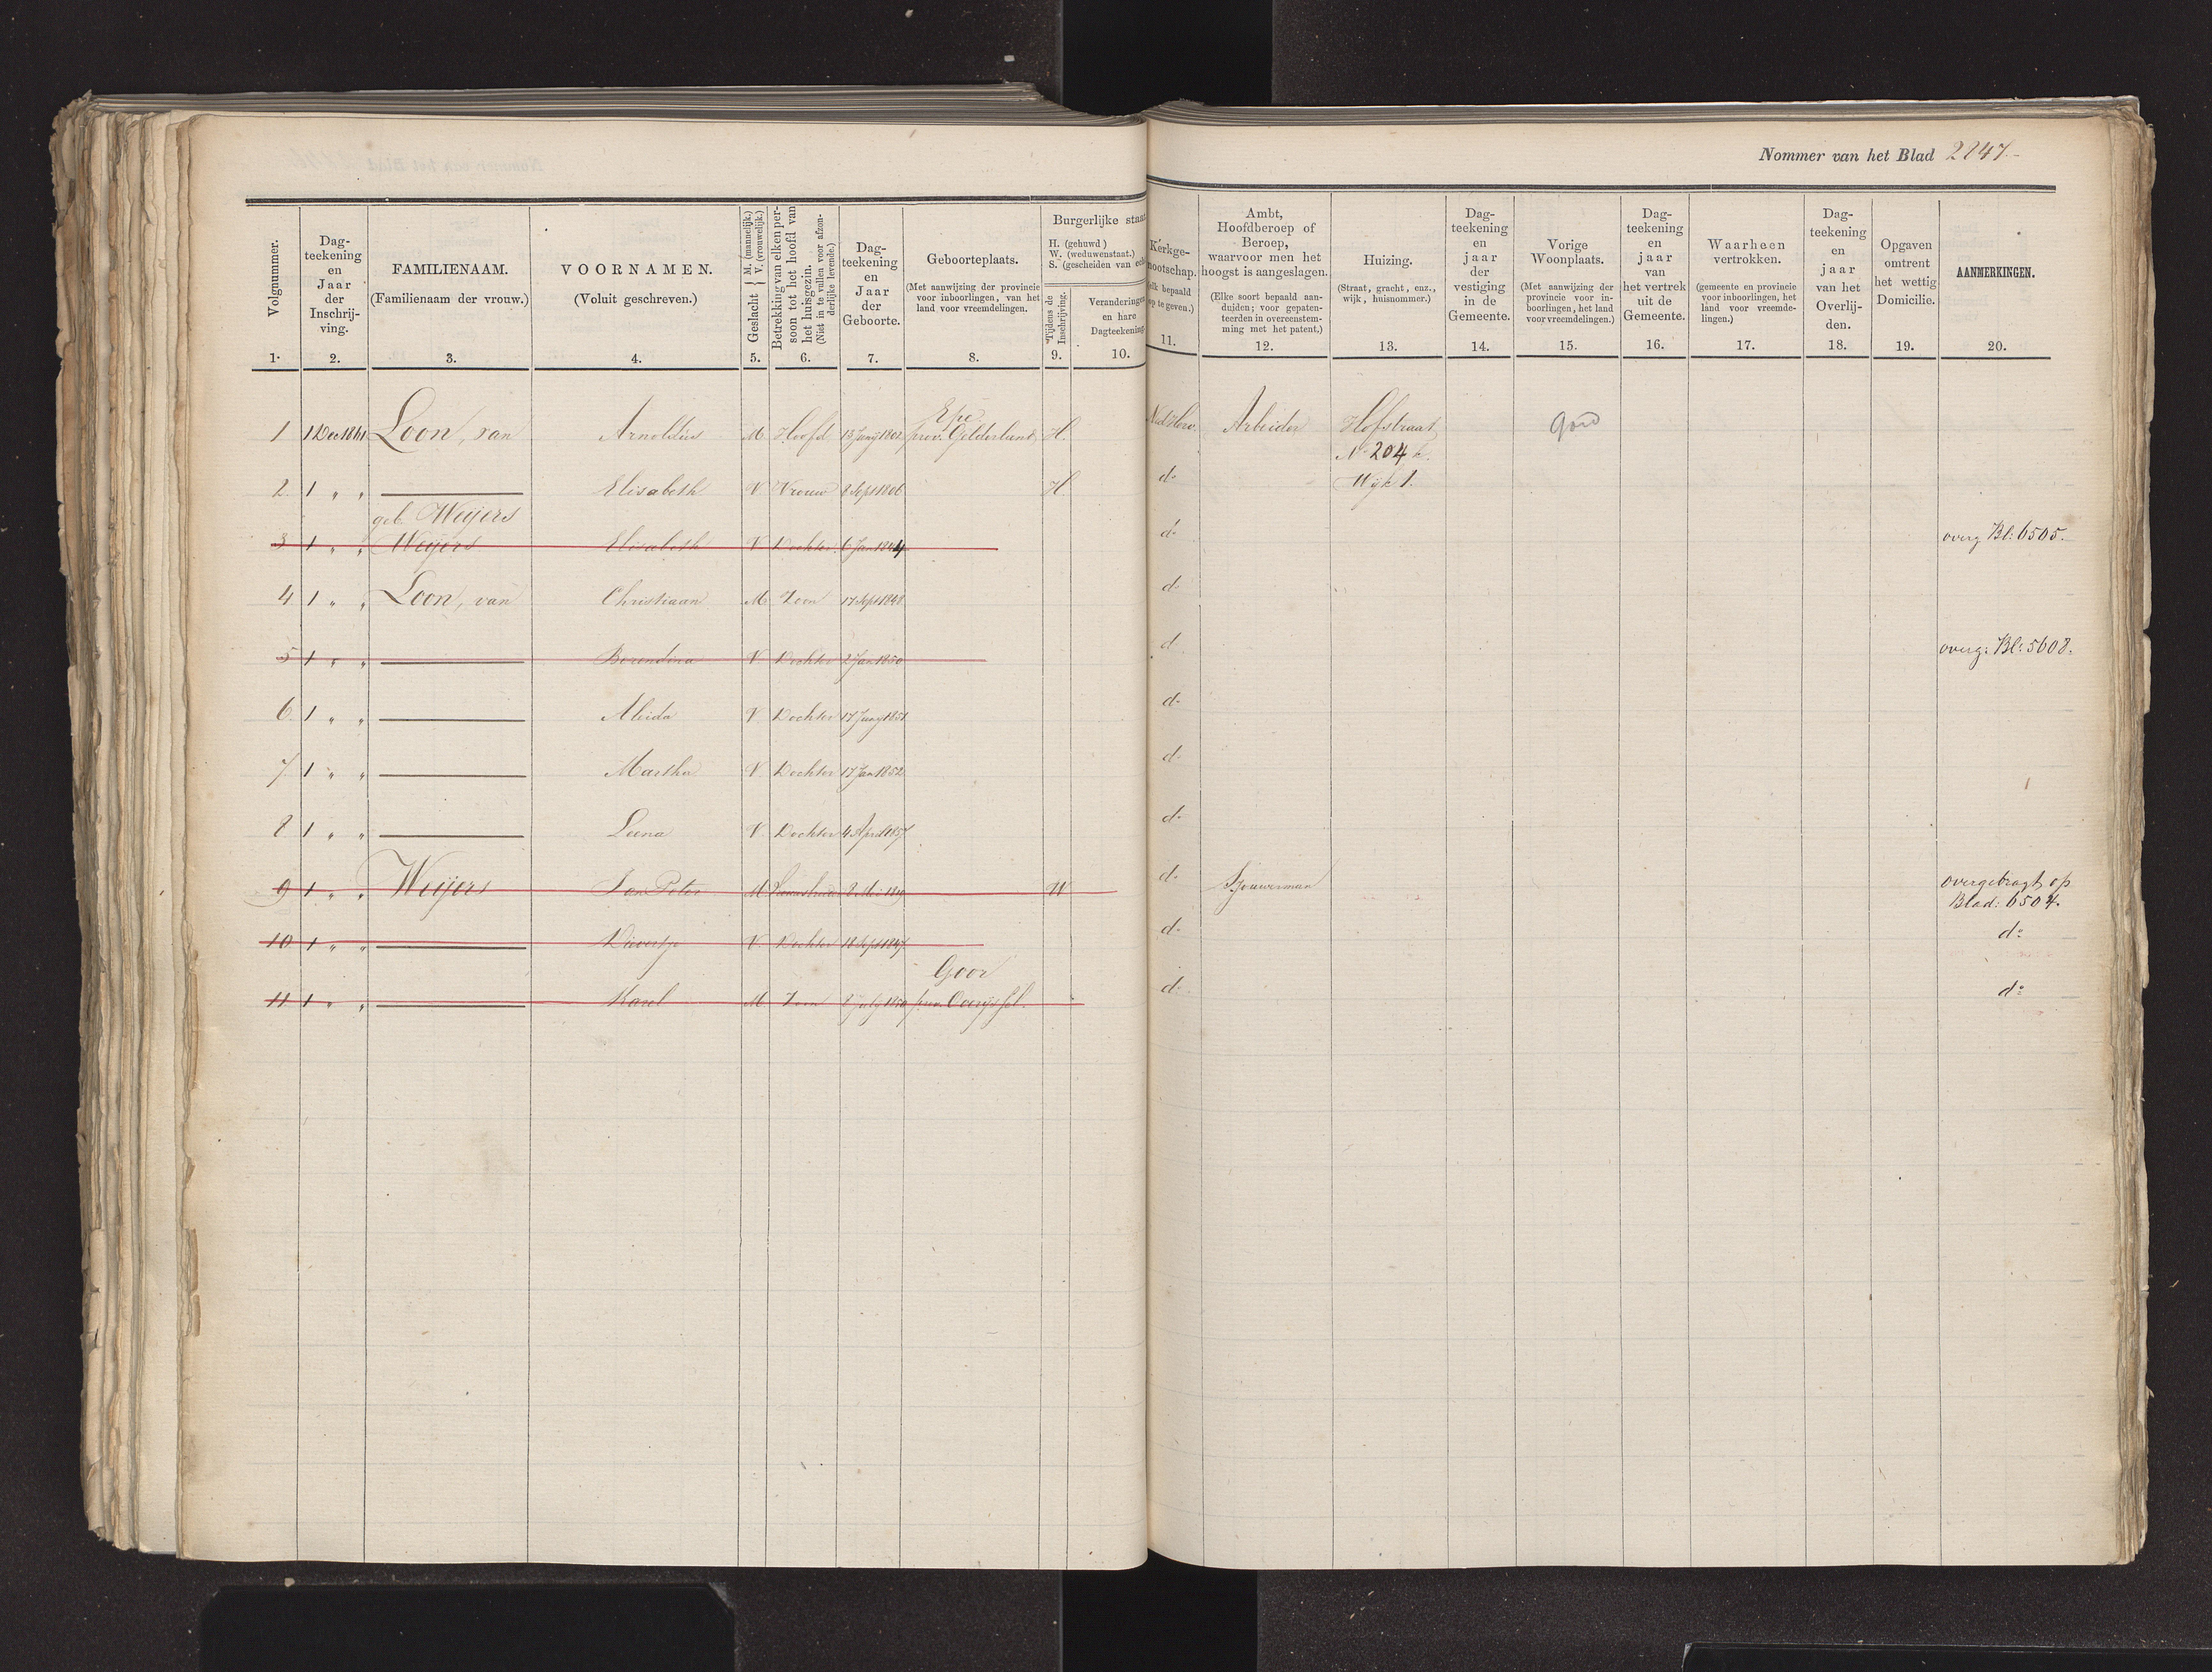 Nommer van het Blad 2847.
Volgnummer.
1.
Dag-
teekening
en
Jaar
der
Inschrij-
ving.
2.
FAMILIENAAM.
(Familienaam der vrouw.)
3.
VOORNAMEN.
(Voluit geschreven.)
4.
Geslacht { M. (mannelijk.) V. (vrouwelijk.)
5.
Betrekking van elken per-
soon tot het hoofd van
het huisgezin.
(Niet in te vullen voor afzon-
derlijke levende.)
6.
Dag-
teekening
en
Jaar
der
Geboorte.
7.
Geboorteplaats.
(Met aanwijzing der provincie
voor inboorlingen, van het
land voor vreemdelingen.
8.
Burgerlijke staat
H. (gehuwd)
W. (weduwenstaat.)
S. (gescheiden van ech
Tijdens de
Inschrijving.
9.
Veranderingen
en hare
Dagteekening
10.
Kerkge-
nootschap.
elk bepaald
op te geven.)
11.
Ambt,
Hoofdberoep of
Beroep,
waarvoor men het
hoogst is aangeslagen.
(Elke soort bepaald aan-
duiden; voor gepaten-
teerden in overeenstem-
ming met het patent.)
12.
Huizing.
(Straat, gracht, enz.,
wijk, huisnommer.)
13.
Dag-
teekening
en
jaar
der
vestiging
in de
Gemeente.
14.
Vorige
Woonplaats.
(Met aanwijzing der
provincie voor in-
boorlingen, het land
voor vreemdelingen.)
15.
Dag-
teekening
en
jaar
van
het vertrek
uit de
Gemeente.
16.
Waarheen
vertrokken.
(gemeente en provincie
voor inboorlingen, het
land voor vreemde-
lingen.)
17.
Dag-
teekening
en
jaar
van het
Overlij-
den.
18.
Opgaven
omtrent
het wettig
Domicilie.
19.
AANMERKINGEN.
20.
Epe
1 1 Dec 1861 Loon, van Arnoldus M. Hoofd 13 Junij 1802 prov. Gelderland H. Ned Herv. Arbeider Hofstraat Goor
No 204
2. 1 " " Elisabeth V. Vrouw 8 Sept 1806 H. do Wijk 1.
geb. Weijers
3 1 " " Weijers Elisabeth V. Dochter 6 Jan 1844 do overg Bl: 6505.
4 1 " " Loon, van Christiaan M Zoon 17 Sept 1848 do
5 1 " " Berendina V. Dochter 2 Jan 1850 do overg: Bl: 5608.
6 1 " " Aleida V. Dochter 17 Junij 1851 do
7 1 " " Martha V. Dochter 17 Jan 1852 do
8 1 " " Leena V. Dochter 4 April 1857 do
9 1 " " Weijers Jan Peter M 8 Mei W do Sjouwerman overgebragt op
Blad: 6504.
10 1 " " V. Dochter 18 Sept 1847 do do
Goor
11 1 " " Karel M. Zoon 8 July 1850 prov. Overijssel. do do